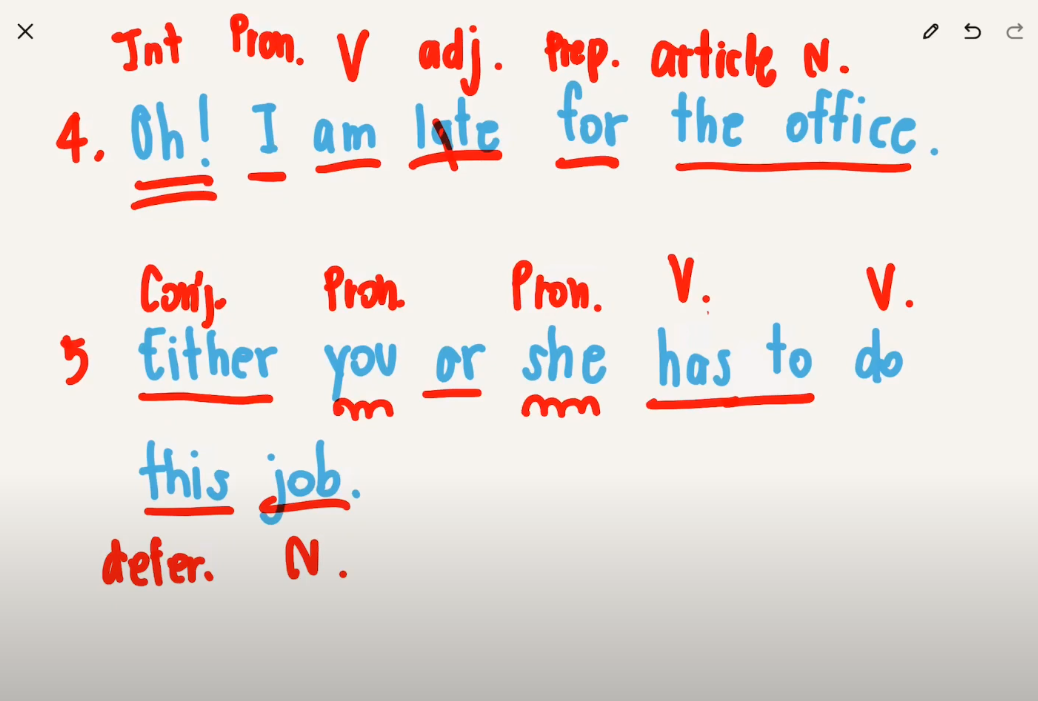 Int Pron. V adj. Prep. article N.
4. Oh! I am late for the office.
Conj. Pron. Pron. V. V.
5 Either you or she has to do
this job.
deter. N.